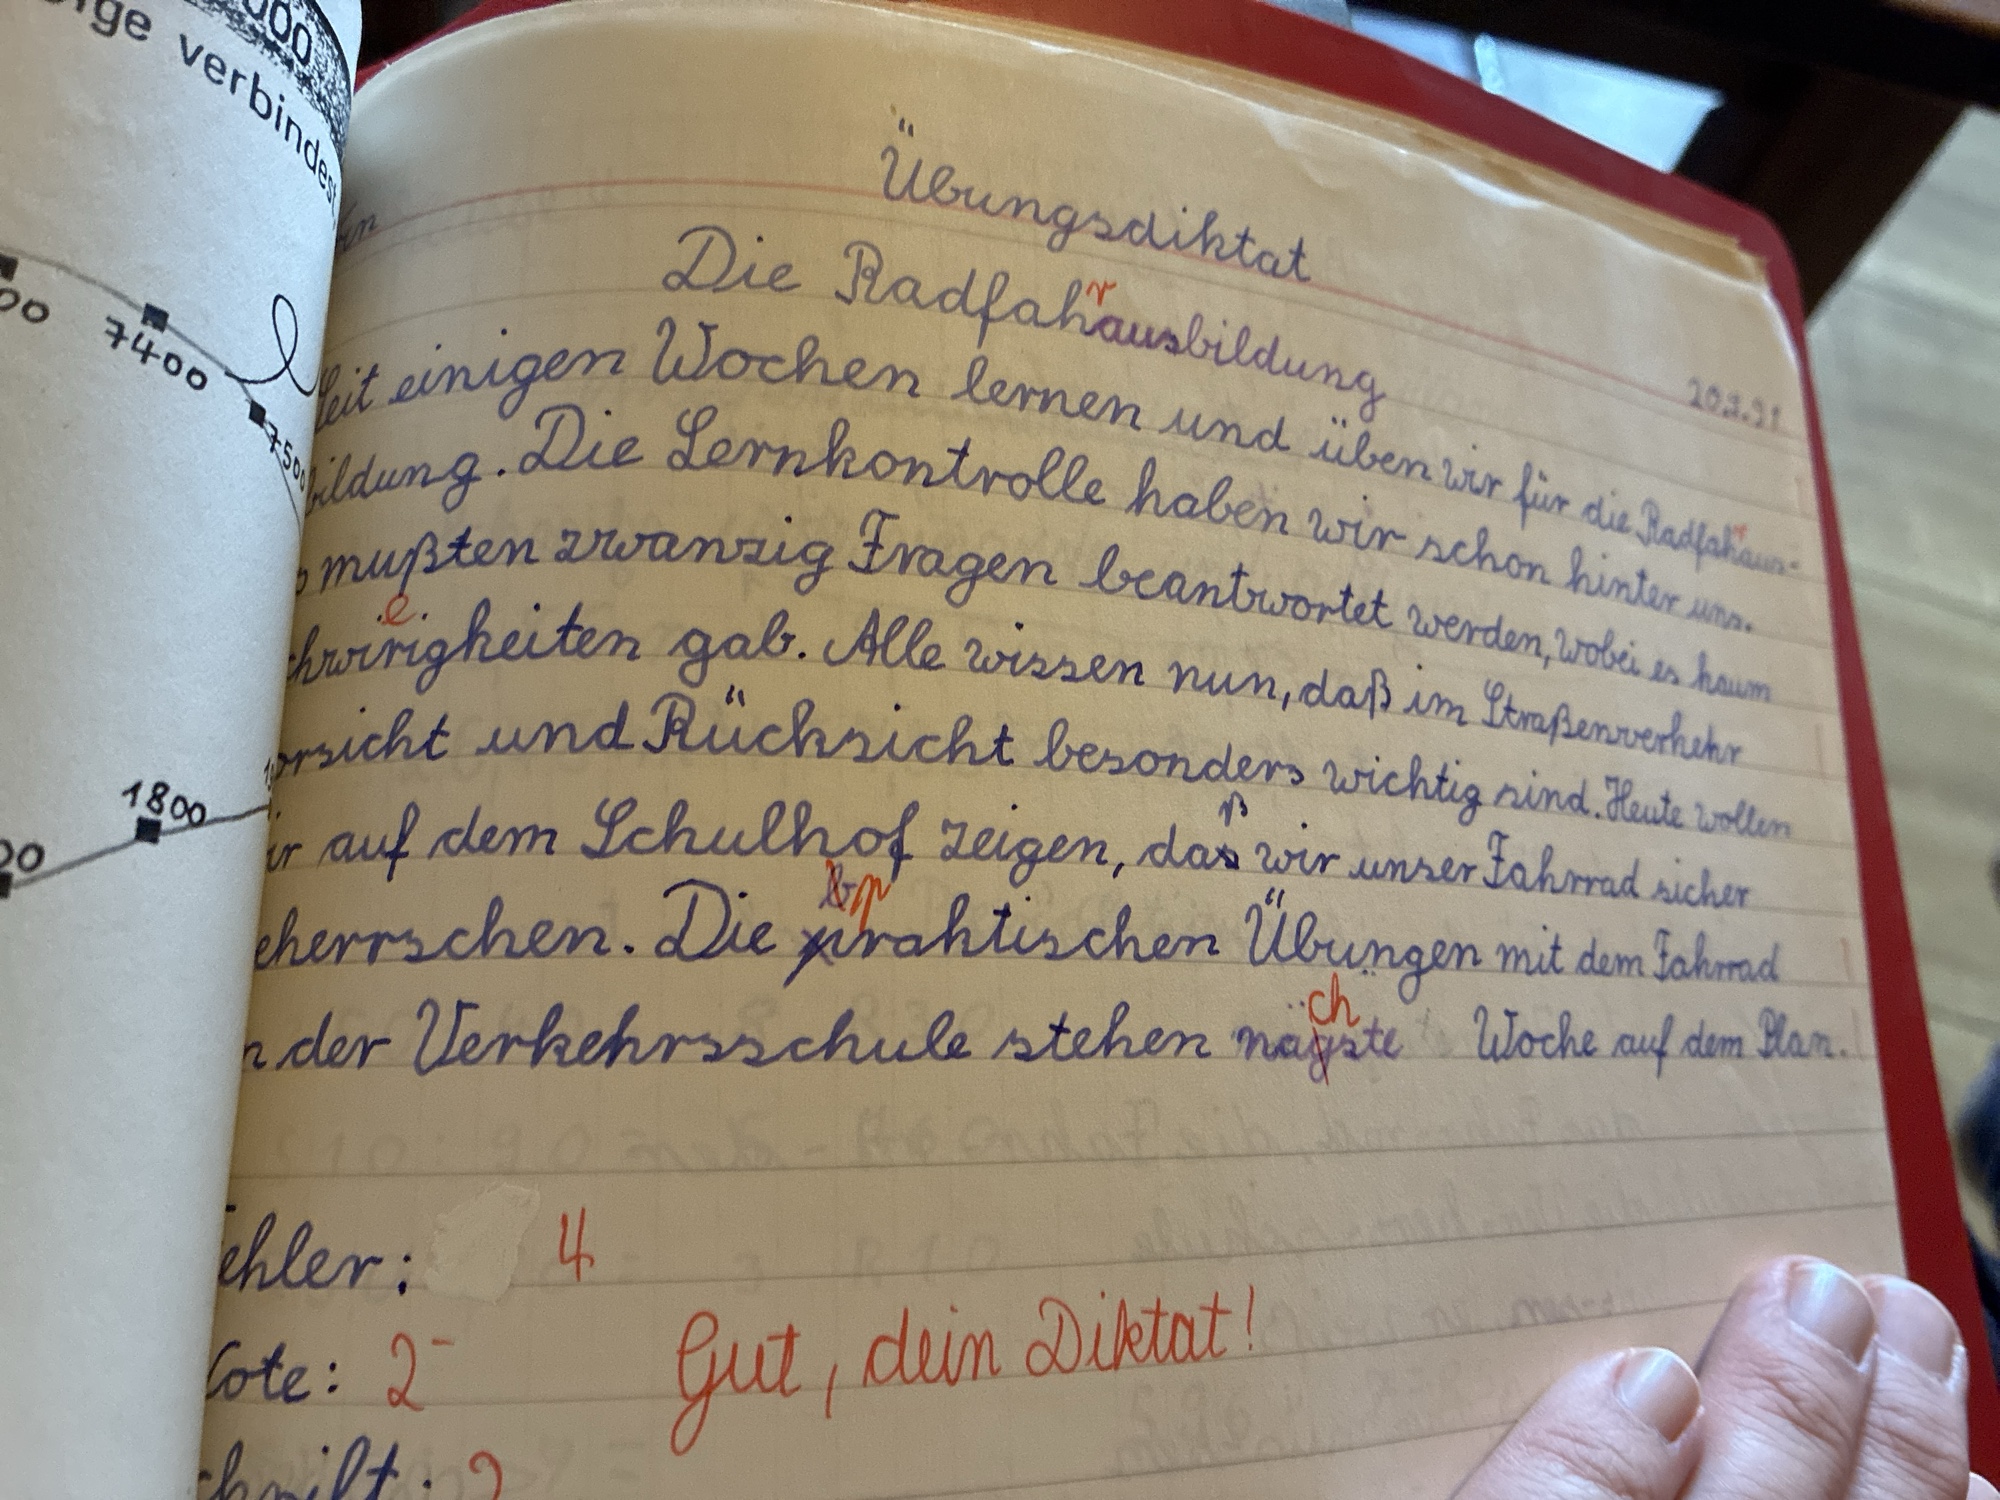 000
verbindest
00
7400
7500
1800
00
Übungsdiktat
Die Radfahrausbildung
20.2.91
Seit einigen Wochen lernen und üben wir für die Radfahraus-
bildung. Die Lernkontrolle haben wir schon hinter uns.
mußten zwanzig Fragen beantwortet werden, wobei es kaum
chwierigkeiten gab. Alle wissen nun, daß im Straßenverkehr
orsicht und Rücksicht besonders wichtig sind. Heute wollen
ir auf dem Schulhof zeigen, daß wir unser Fahrrad sicher
eherrschen. Die praktischen Übungen mit dem Fahrrad
n der Verkehrsschule stehen nächste Woche auf dem Plan.
ehler: 4
Note: 2-
Gut, dein Diktat!
chrift: 2